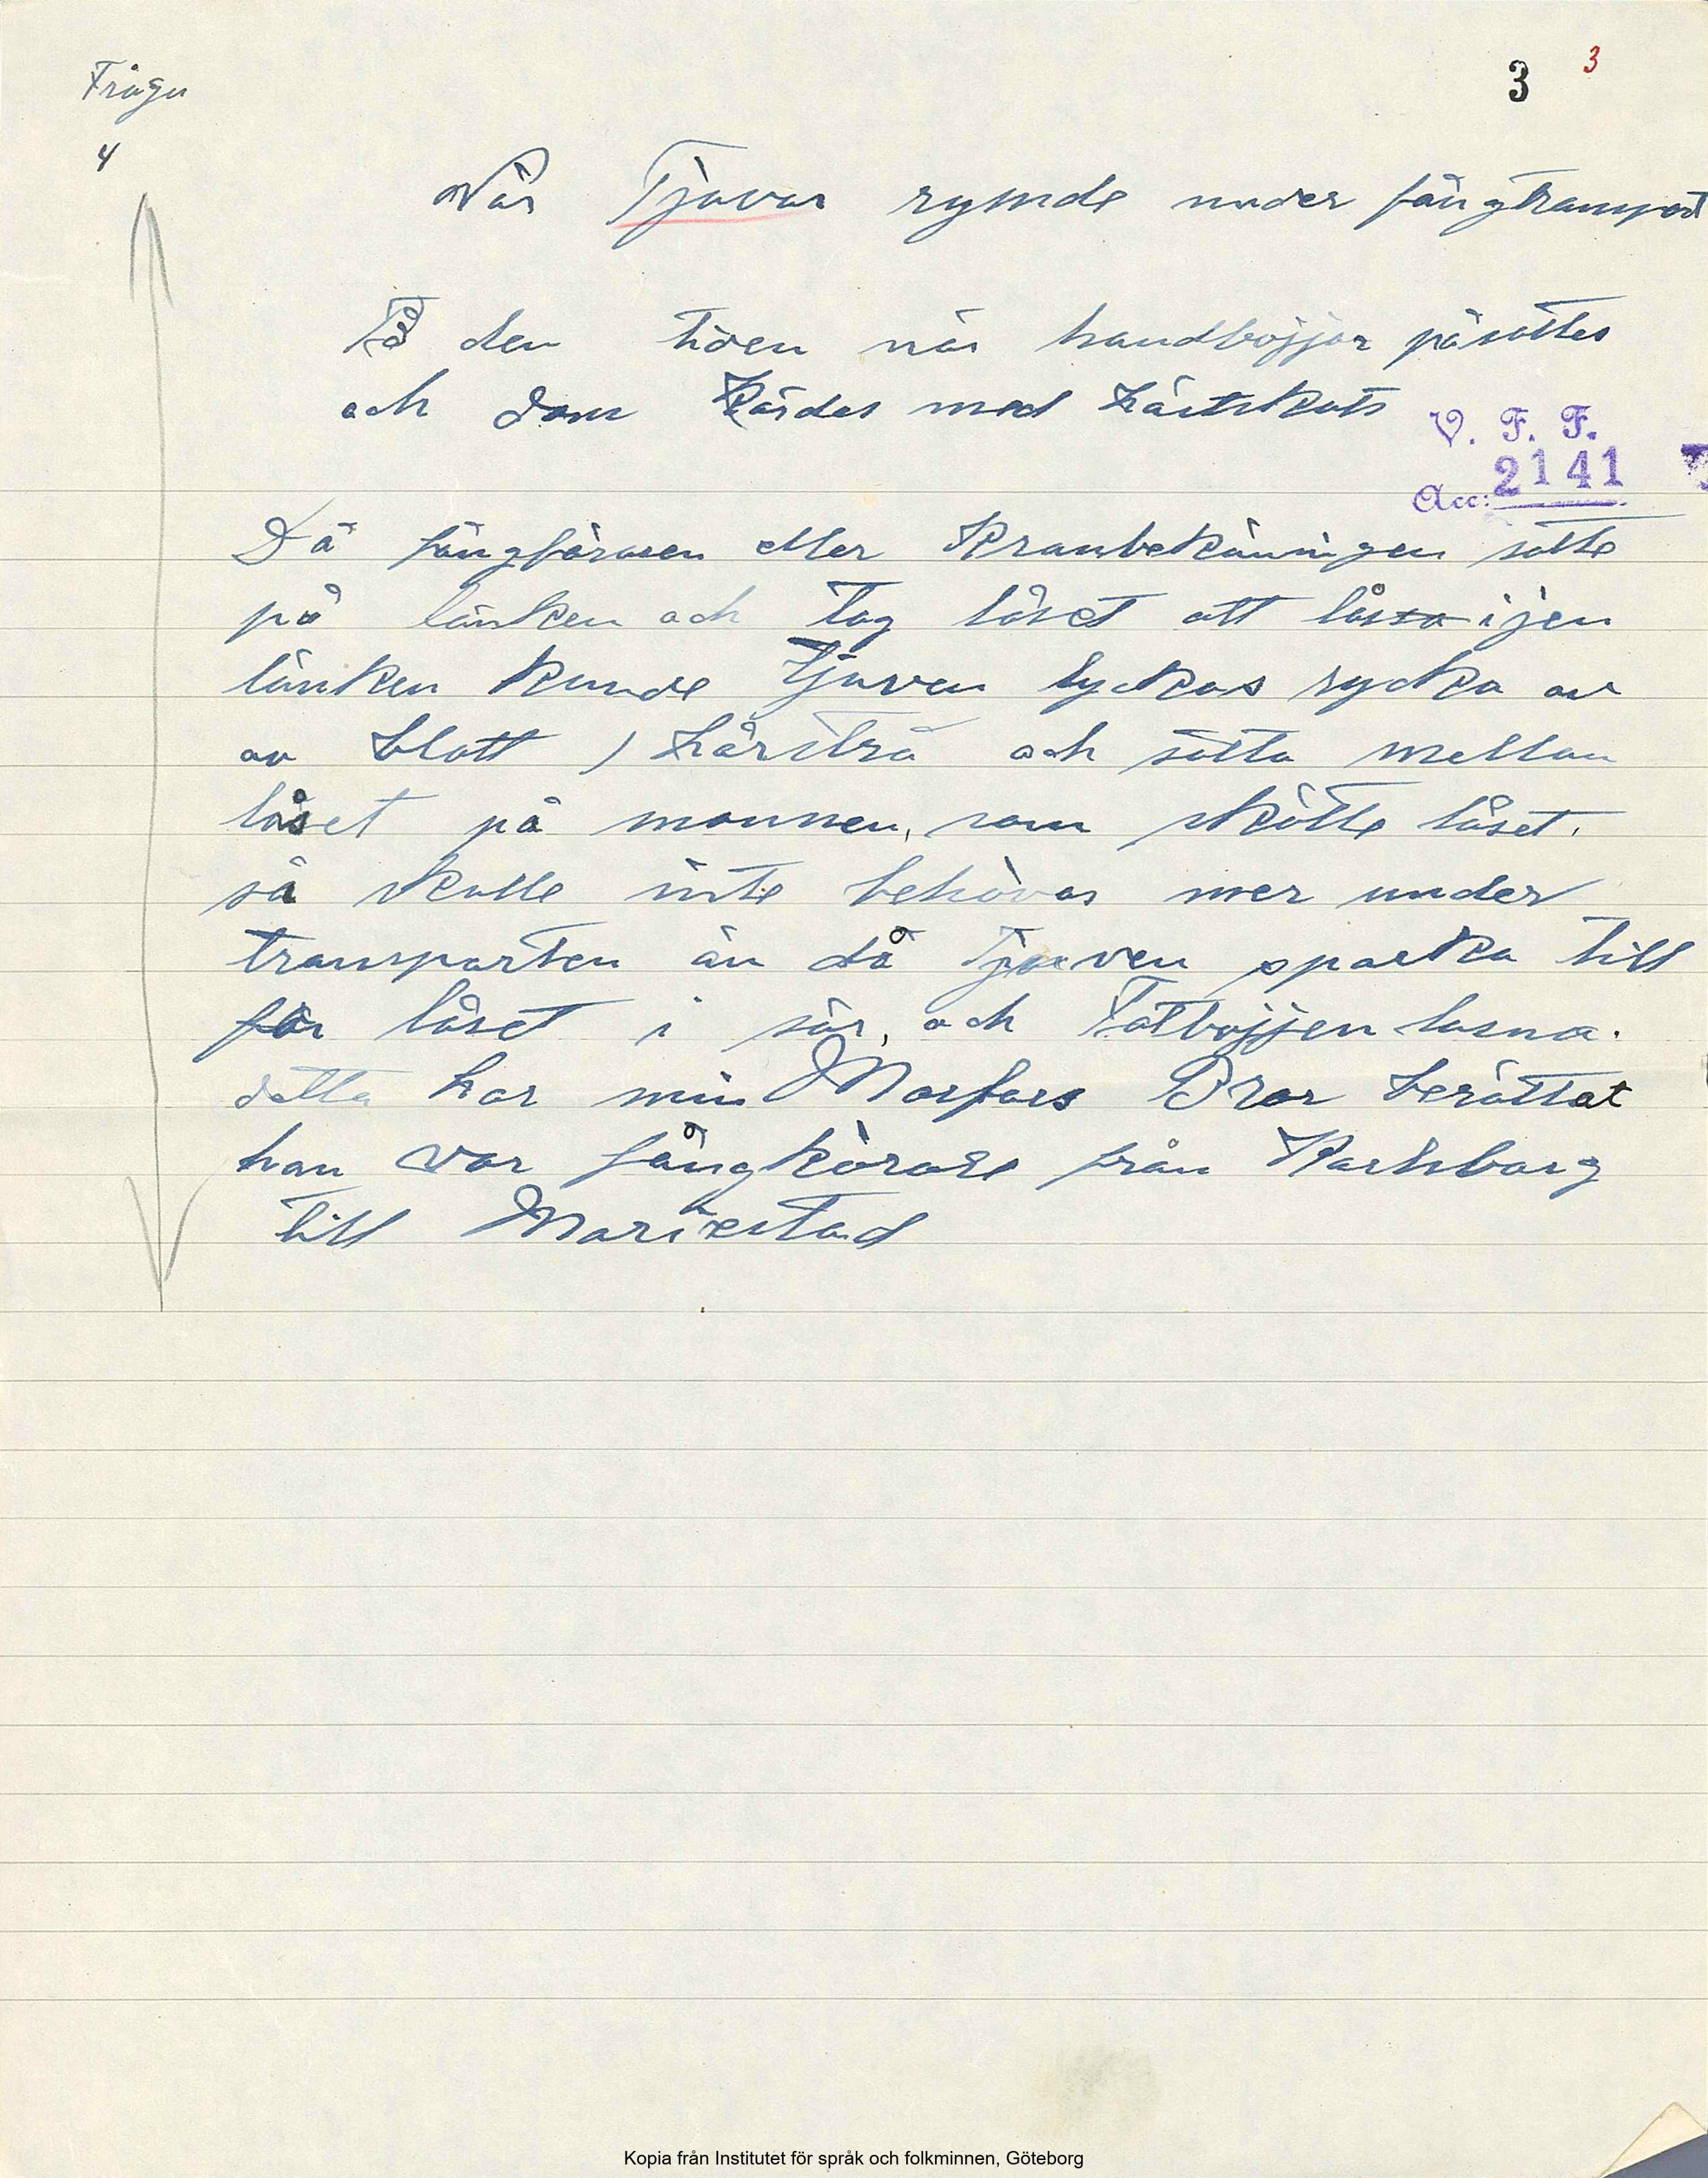 Fråga
3 3
4
När Tjuvar rymde under fångtransport
På den tiden när handbojjor påsattes
och dom kördes med hästskuts
V. F. F.
Acc: 2141
Då fångföraren eller Kronbetjäningen satte
på länken och tog låset att låssa ijen
länken kunde Tjuven lyckas rycka av
av blott 1 hårstrå och sätta mellan
låset på mannen, som skötte låset.
så skulle inte behövas mer under
transporten än då Tjuven sparka till
for låset i sär, och Fotbojjen losna.
detta har min Morfars Bror berättat
han var fångkörare från Karlsborg
till Mariestad
Kopia från Institutet för språk och folkminnen, Göteborg